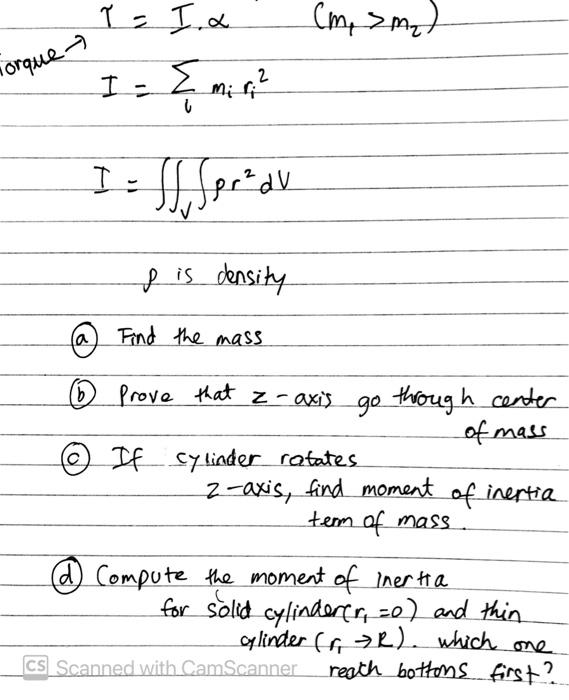 τ = I.α (m₁ > m₂)
Torque →
I = Σ mᵢ rᵢ²
i
I = ∭ᵥ ρr² dV
ρ is density
ⓐ Find the mass
ⓑ Prove that z-axis go through center
of mass
ⓒ If cylinder rotates
z-axis, find moment of inertia
term of mass.
ⓓ Compute the moment of inertia
for solid cylinder (r₁ = 0) and thin
cylinder (r₁ → R). which one
reath bottons first?
CS Scanned with CamScanner